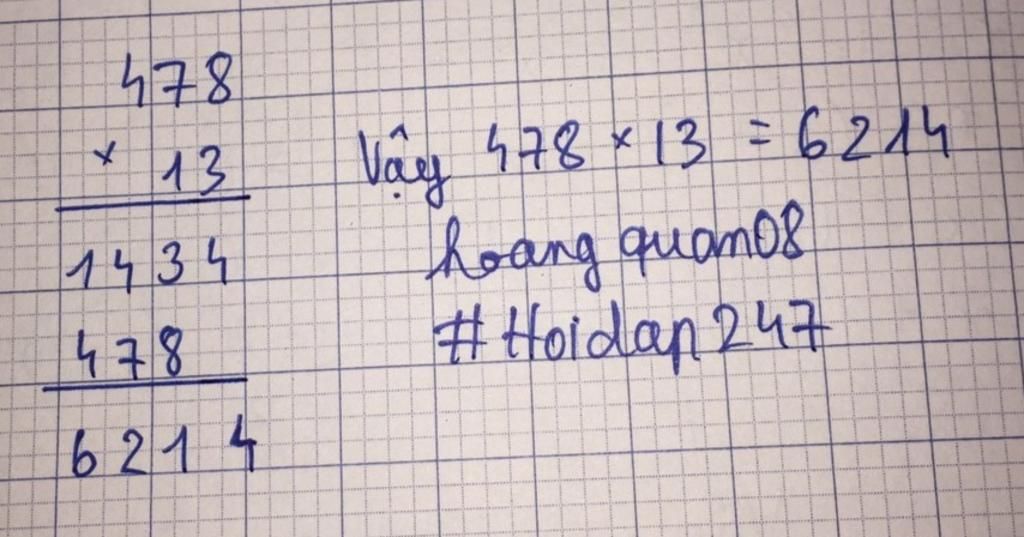 478
× 13
1434
478
6214
Vậy 478 × 13 = 6214
hoangquan08
#Hoidap247